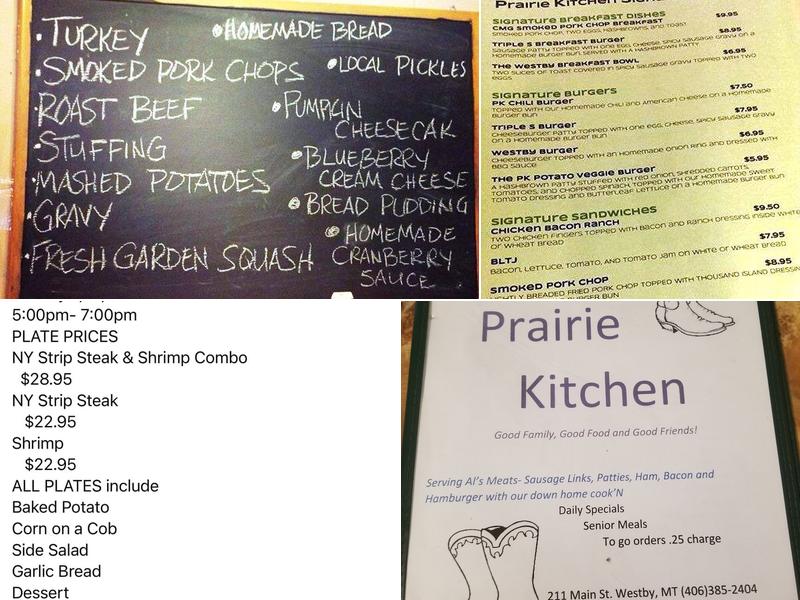 •TURKEY
•SMOKED PORK CHOPS
•ROAST BEEF
•STUFFING
•MASHED POTATOES
•GRAVY
•FRESH GARDEN SQUASH
•HOMEMADE BREAD
•LOCAL PICKLES
•PUMPKIN
CHEESECAK
•BLUEBERRY
CREAM CHEESE
•BREAD PUDDING
•HOMEMADE
CRANBERRY
SAUCE
Prairie Kitchen
SIGNATURE BREAKFAST DISHES
CMG SMOKED PORK CHOP BREAKFAST $9.95
SMOKED PORK CHOP, TWO EGGS, HASHBROWNS, AND TOAST
TRIPLE S BREAKFAST BURGER $8.95
SAUSAGE PATTY TOPPED WITH ONE EGG, CHEESE, SPICY SAUSAGE GRAVY ON A
HOMEMADE BURGER BUN, SERVED WITH A HASHBROWN PATTY
THE WESTBY BREAKFAST BOWL $6.95
TWO SLICES OF TOAST COVERED IN SPICY SAUSAGE GRAVY TOPPED WITH TWO
EGGS
SIGNATURE BURGERS
PK CHILI BURGER $7.50
TOPPED WITH OUR HOMEMADE CHILI AND AMERICAN CHEESE ON A HOMEMADE
BURGER BUN
TRIPLE S BURGER $7.95
CHEESEBURGER PATTY TOPPED WITH ONE EGG, CHEESE, SPICY SAUSAGE GRAVY
ON A HOMEMADE BURGER BUN
WESTBY BURGER $6.95
CHEESEBURGER TOPPED WITH AN HOMEMADE ONION RING AND DRESSED WITH
BBQ SAUCE
THE PK POTATO VEGGIE BURGER $5.95
A HASHBROWN PATTY STUFFED WITH RED ONION, SHREDDED CARROTS,
TOMATOES, AND CHOPPED SPINACH, TOPPED WITH OUR HOMEMADE SWEET
TOMATO DRESSING AND BUTTER/LEAF LETTUCE ON A HOMEMADE BURGER BUN
SIGNATURE SANDWICHES
CHICKEN BACON RANCH $9.50
TWO CHICKEN FINGERS TOPPED WITH BACON AND RANCH DRESSING INSIDE WHITE
OR WHEAT BREAD
BLTJ $7.95
BACON, LETTUCE, TOMATO, AND TOMATO JAM ON WHITE OR WHEAT BREAD
SMOKED PORK CHOP $8.95
LIGHTLY BREADED FRIED PORK CHOP TOPPED WITH THOUSAND ISLAND DRESSING
BURGER BUN
5:00pm- 7:00pm
PLATE PRICES
NY Strip Steak & Shrimp Combo
$28.95
NY Strip Steak
$22.95
Shrimp
$22.95
ALL PLATES include
Baked Potato
Corn on a Cob
Side Salad
Garlic Bread
Dessert
Prairie
Kitchen
Good Family, Good Food and Good Friends!
Serving Al's Meats- Sausage Links, Patties, Ham, Bacon and
Hamburger with our down home cook'N
Daily Specials
Senior Meals
To go orders .25 charge
211 Main St. Westby, MT (406)385-2404